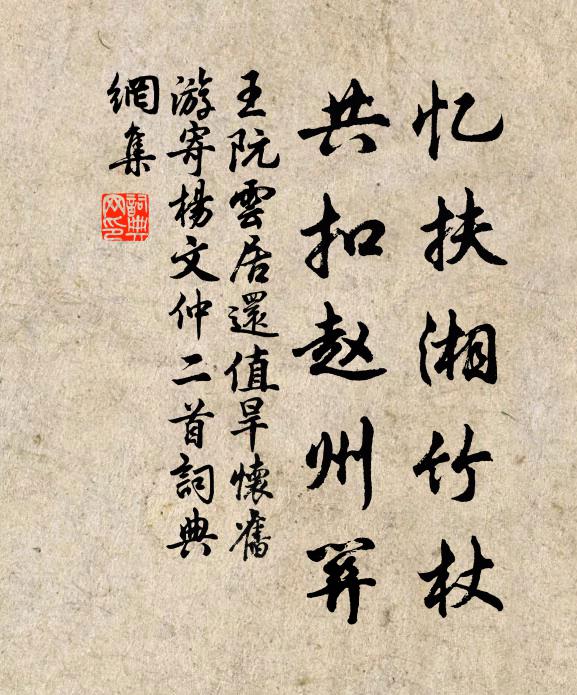 忆扶湘竹杖
共扣赵州
王阮雲居還值旱懷舊
游寄楊文仲二首詞典
網集
詞典
网印